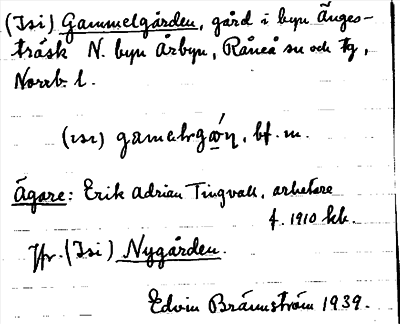 (Isi) Gammelgården, gård i byn Änges-
träsk N. byn Årbyn, Råneå sn och tg,
Norrb. l.
(ısı) gamalrgά̱η, bf. m.
Ägare: Erik Adrian Tingvall, arbetare
f. 1910 kb.
Jfr. (Isi) Nygården.
Edvin Brännström 1939.